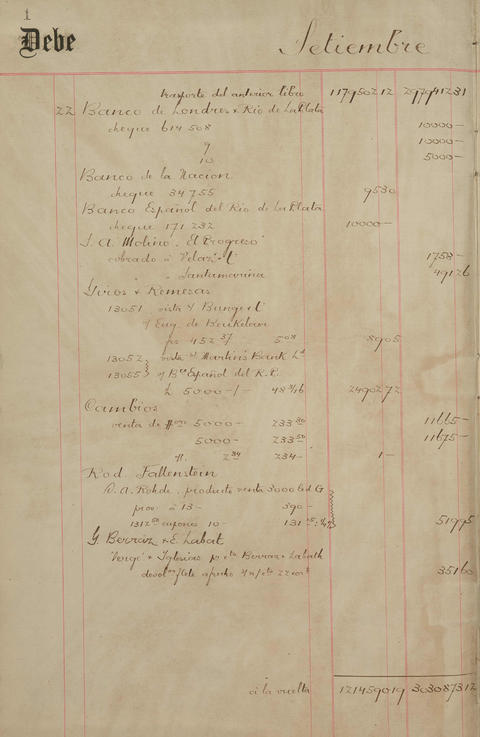 1
Debe
Setiembre
trasporte del anterior libro 117950212 297941231
22 Banco de Londres & Rio de La Plata
cheque 614508 10000—
9 10000—
10 5000—
Banco de la Nacion
cheque 34755 9530
Banco Español del Rio de La Plata
cheque 171232 10000—
S. A. Molino "El Progreso"
cobrado á Velaz & Cº 1758—
" " Santamarina 49126
Giros & Remesas
13051 vista s/ Bunge & Cº
o/ Eug. de Beukelaer
frs 452 37 508 8905
13052 vista s/ Martin's Bank Ld
13055 o/ Bco Español del R. P.
£ 5000-/- 48 3/16 249027 2
Cambios
venta de 5000— 233 30 11665—
5000— 233 50 11675—
2 34 234— 1—
Rod. Fallenstein
R. A. Rohde. producto venta 3000 b d G
prov á 13— 390—
cupones 10— 131 51995
G Berraz & E. Labat
Vergé & Iglesias p. cta Berraz & Labath
35160
á la vuelta 121459019 303087312